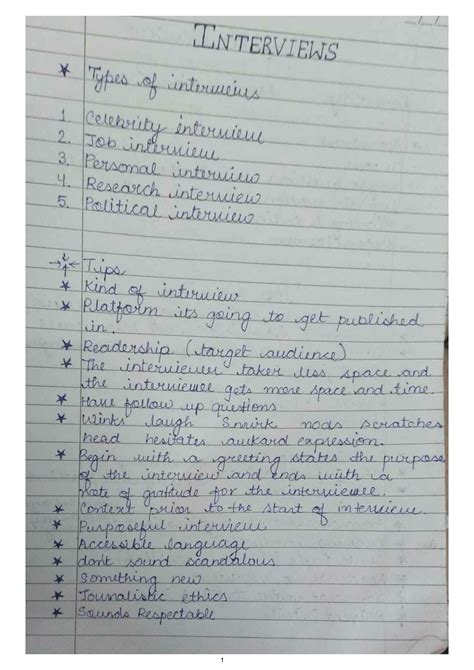 INTERVIEWS
* Types of interviews
1. Celebrity interview
2. Job interview
3. Personal interview
4. Research interview
5. Political interview
Tips
* Kind of interview
* Platform its going to get published
in.
* Readership (target audience)
* The interviewer takes less space and
the interviewee gets more space and time.
* Have follow up questions
* Winks laugh Smirk nods scratches
head hesitates awkard expression.
* Begin with a greeting states the purpose
of the interview and ends with a
note of gratitude for the interviewee.
* Context prior to the start of interview.
* Purposeful interview
* Accessible language
* dont sound scandalous
* Something new
* Journalistic ethics
* Sounds Respectable
1